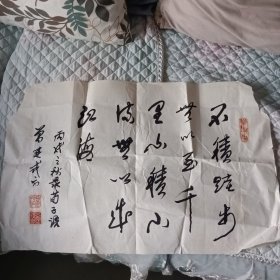 不積跬步
無以至千
里不積小
流無以成
江海
丙戌之秋录荀子语